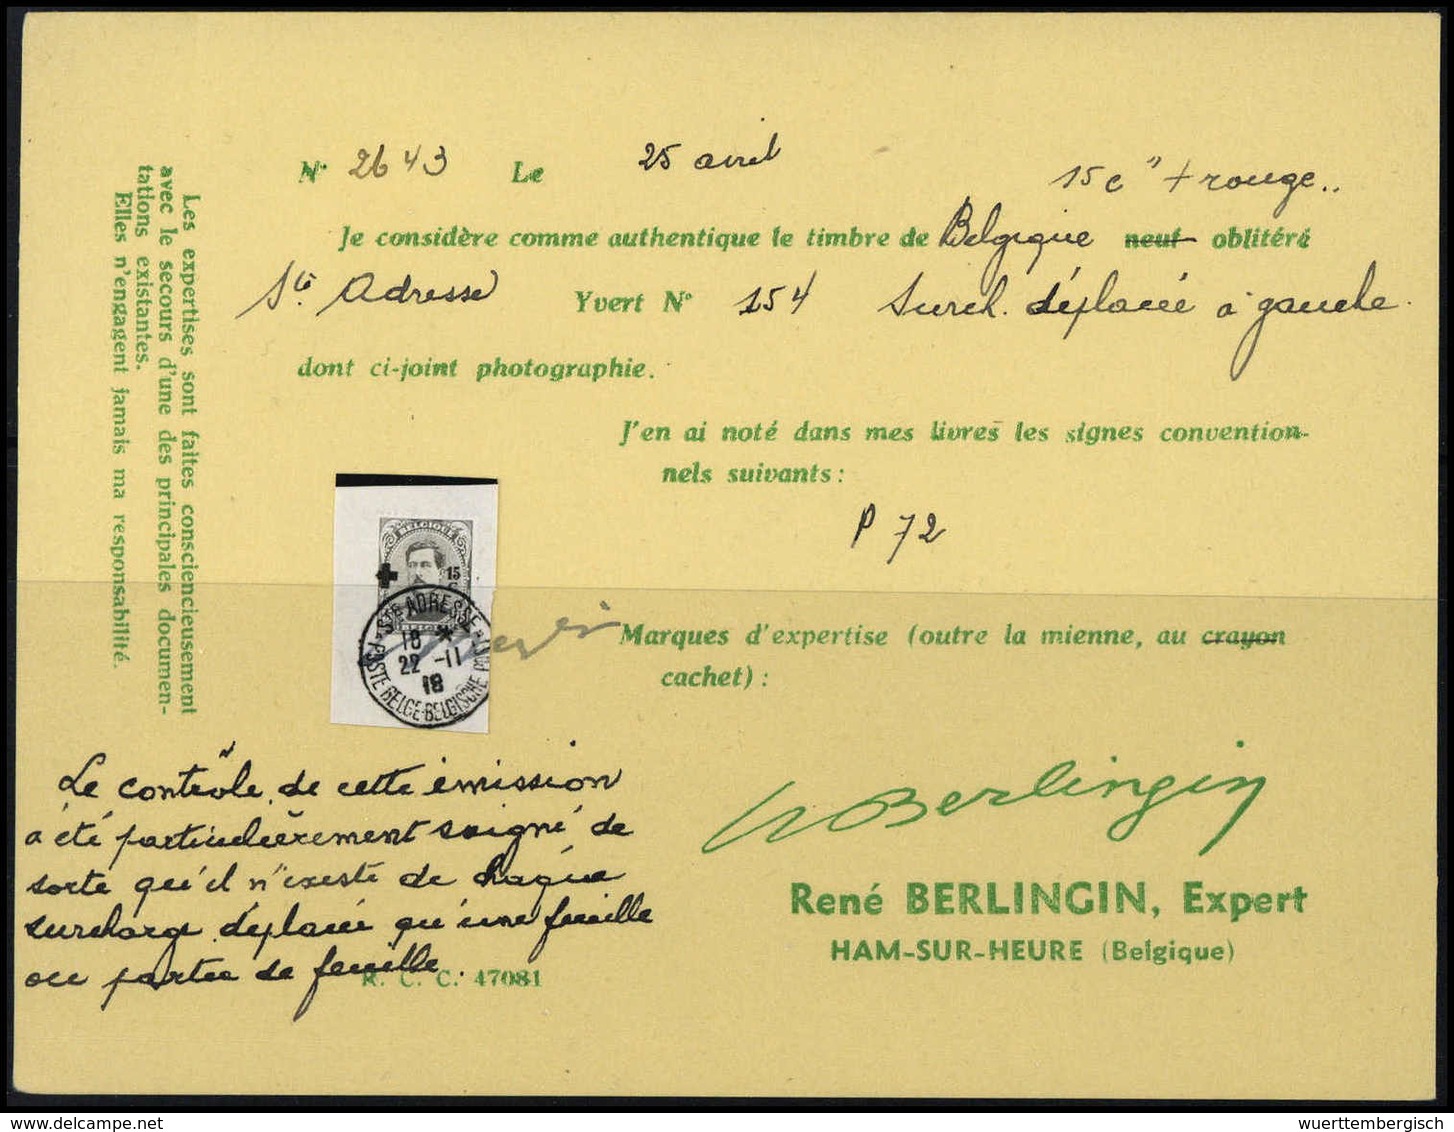 Nº 2643 Le 25 avril
15 c" + rouge..
Je considère comme authentique le timbre de Belgique neuf oblitéré
Ste Adresse Yvert Nº 154 Surch. déplacée à gauche.
dont ci-joint photographie.
J'en ai noté dans mes livres les signes convention-
nels suivants:
P 72
Marques d'expertise (outre la mienne, au crayon
cachet) :
Les expertises sont faites consciencieusement
avec le secours d'une des principales documen-
tations existantes.
Elles n'engagent jamais ma responsabilité.
BELGIQUE
15
C
STE ADRESSE
18 *
22 -11
18
POSTE BELGE-BELGISCHE
Le contrôle de cette émission
a été particulièrement soigné de
sorte qu'il n'existe de chaque
surcharge déplacée qu'une feuille
ou partie de feuille.
R. C. C. 47081
Berlingin
René BERLINGIN, Expert
HAM-SUR-HEURE (Belgique)
delcampe.net
wuerttembergisch